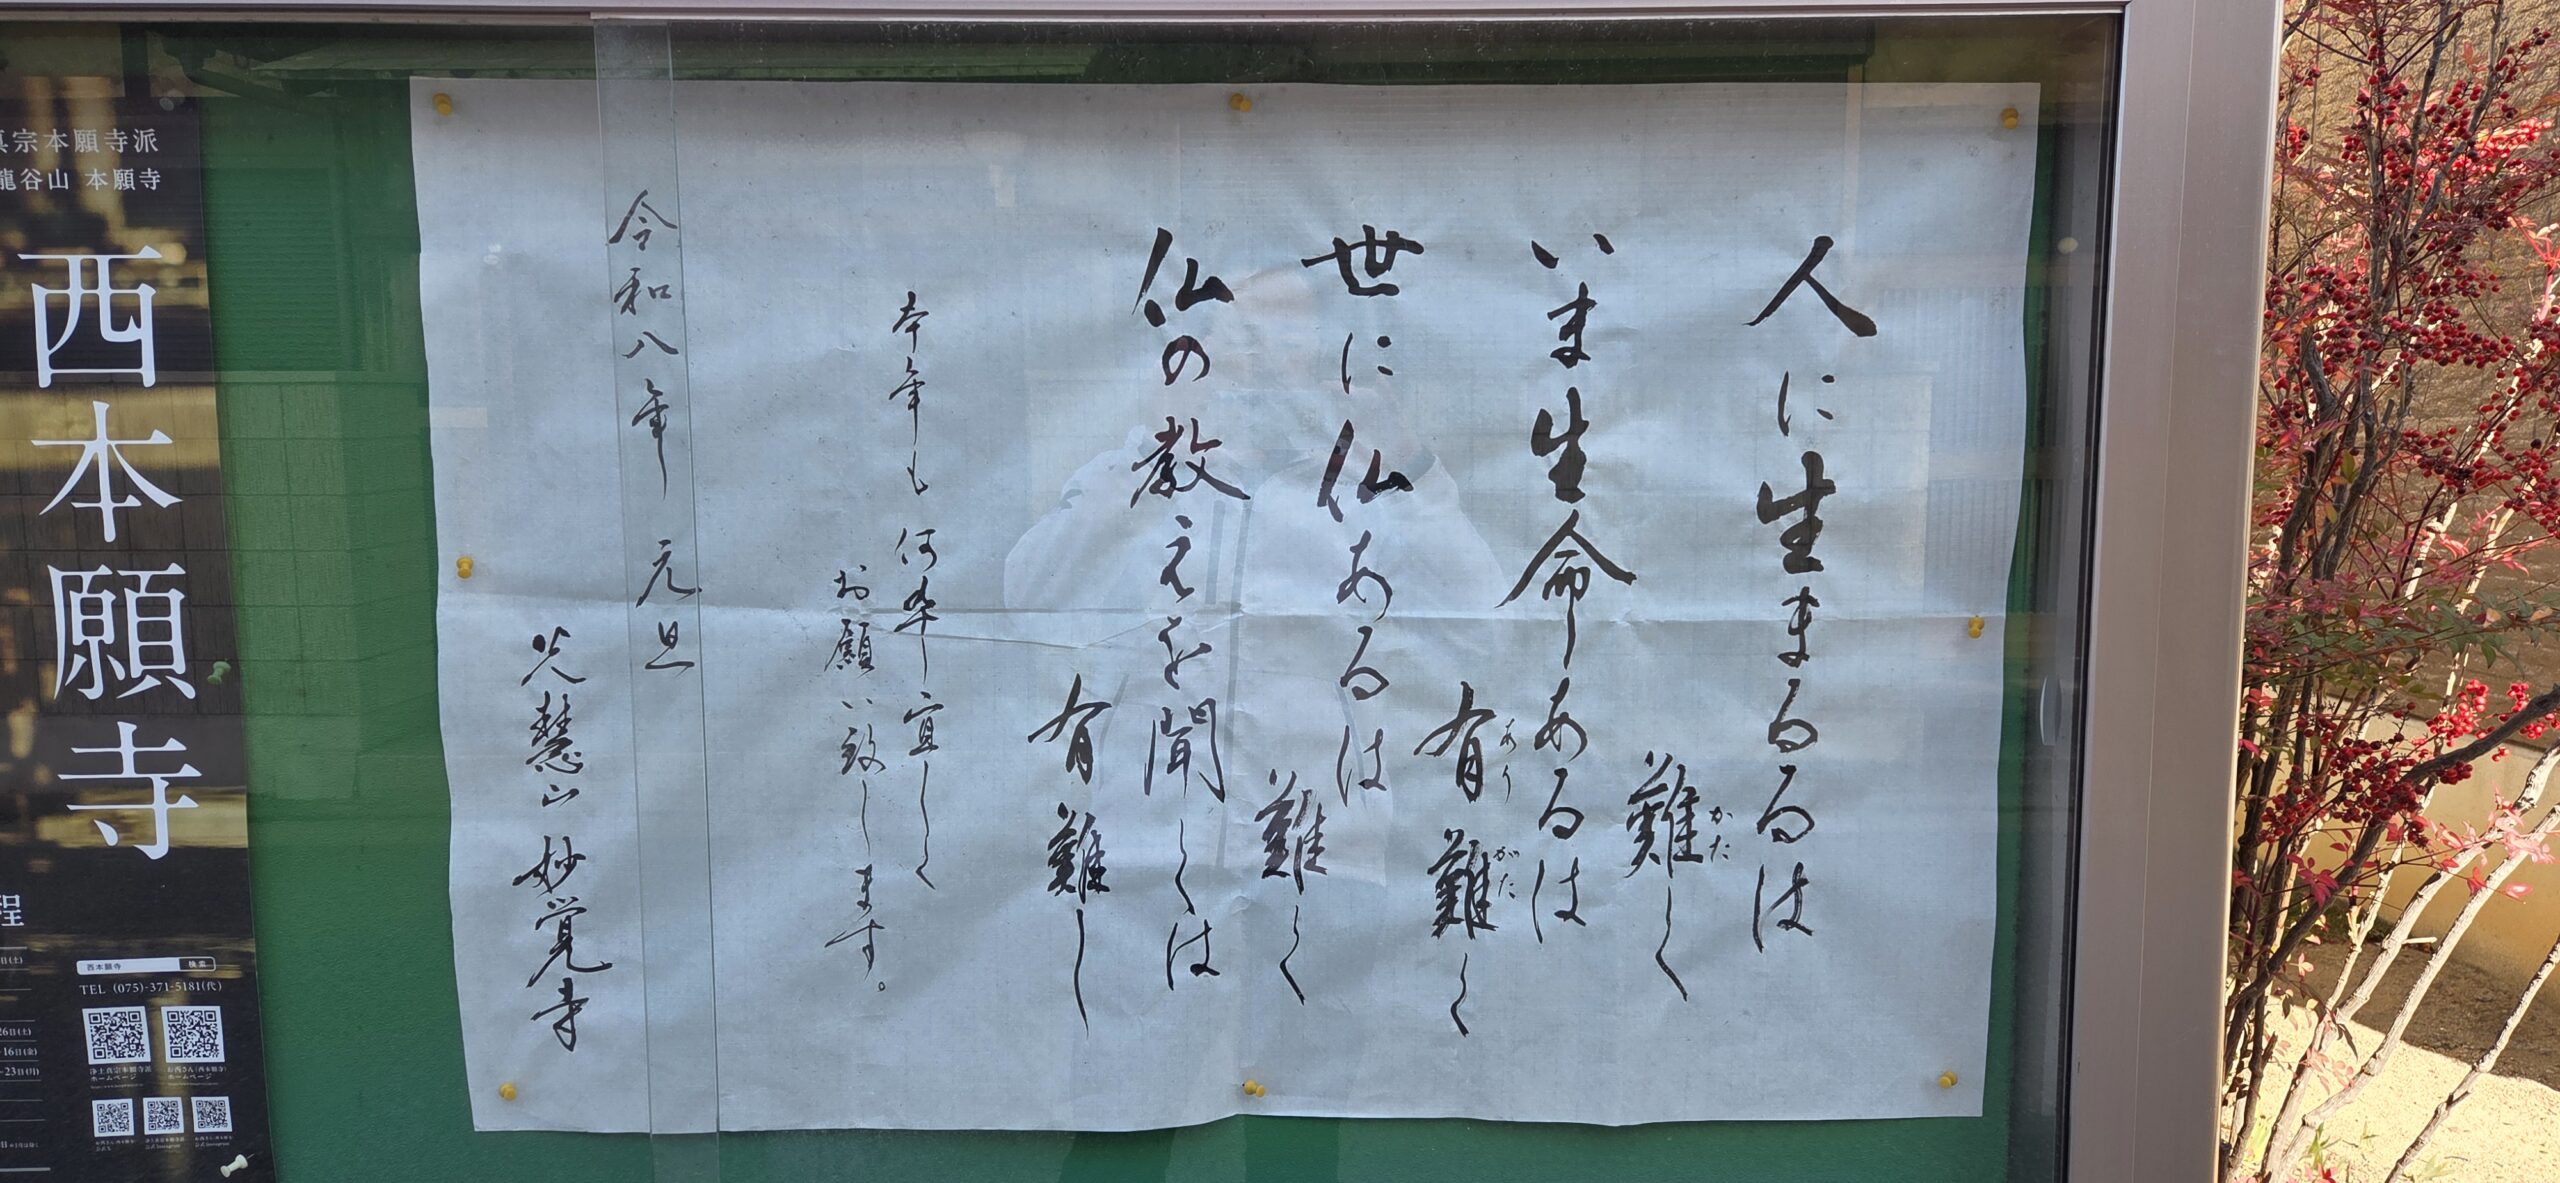 人に生まるるは
難しく
かた
いま生命あるは
有難く
あり
がた
世に仏あるは
難く
仏の教えを聞くは
有難し
本年も何卒宜しく
お願い致します。
令和八年 元旦
光慧山 妙覚寺
真宗本願寺派
龍谷山 本願寺
西本願寺
程
西本願寺 検索
TEL (075)-371-5181(代)
浄土真宗本願寺派
ホームページ
お西さん(西本願寺)
ホームページ
26日(土)
16日(金)
23日(月)